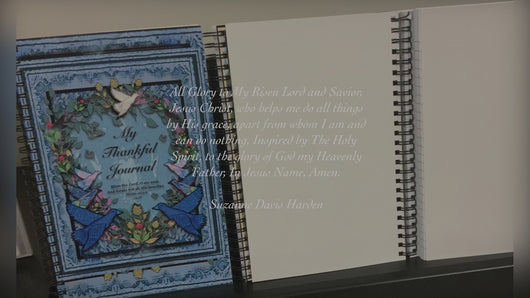 My
Thankful
Journal
All Glory to My Risen Lord and Savior,
Jesus Christ, who helps me do all things
by His grace, apart from whom I am and
can do nothing, Inspired by The Holy
Spirit, to the glory of God my Heavenly
Father, In Jesus Name, Amen.
Suzanne Davis Harden